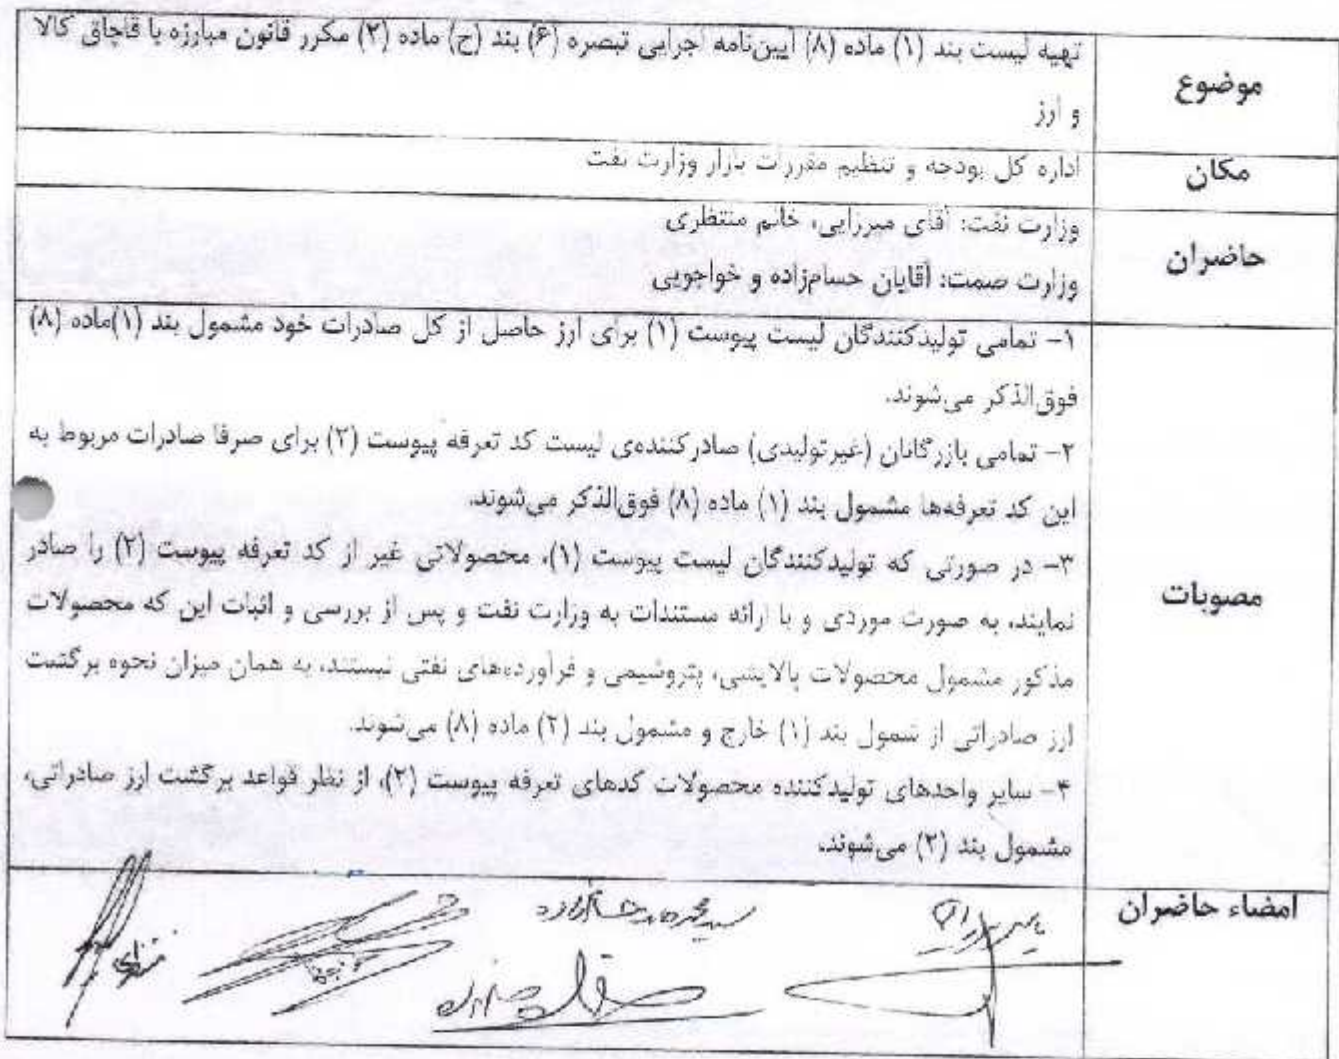 موضوع
تهیه لیست بند (۱) ماده (۸) آیین‌نامه اجرایی تبصره (۶) بند (ح) ماده (۲) مکرر قانون مبارزه با قاچاق کالا
و ارز
مکان
اداره کل بودجه و تنظیم مقررات بازار وزارت نفت
حاضران
وزارت نفت: آقای میرزایی، خانم منتظری
وزارت صمت: آقایان حسام‌زاده و خواجویی
مصوبات
۱- تمامی تولیدکنندگان لیست پیوست (۱) برای ارز حاصل از کل صادرات خود مشمول بند (۱)ماده (۸)
فوق‌الذکر می‌شوند.
۲- تمامی بازرگانان (غیرتولیدی) صادرکننده‌ی لیست کد تعرفه پیوست (۲) برای صرفا صادرات مربوط به
این کد تعرفه‌ها مشمول بند (۱) ماده (۸) فوق‌الذکر می‌شوند.
۳- در صورتی که تولیدکنندگان لیست پیوست (۱)، محصولاتی غیر از کد تعرفه پیوست (۲) را صادر
نمایند، به صورت موردی و با ارائه مستندات به وزارت نفت و پس از بررسی و اثبات این که محصولات
مذکور مشمول محصولات پالایشی، پتروشیمی و فرآورده‌های نفتی نیستند، به همان میزان نحوه برگشت
ارز صادراتی از شمول بند (۱) خارج و مشمول بند (۲) ماده (۸) می‌شوند.
۴- سایر واحدهای تولیدکننده محصولات کدهای تعرفه پیوست (۲)، از نظر قواعد برگشت ارز صادراتی،
مشمول بند (۲) می‌شوند.
امضاء حاضران